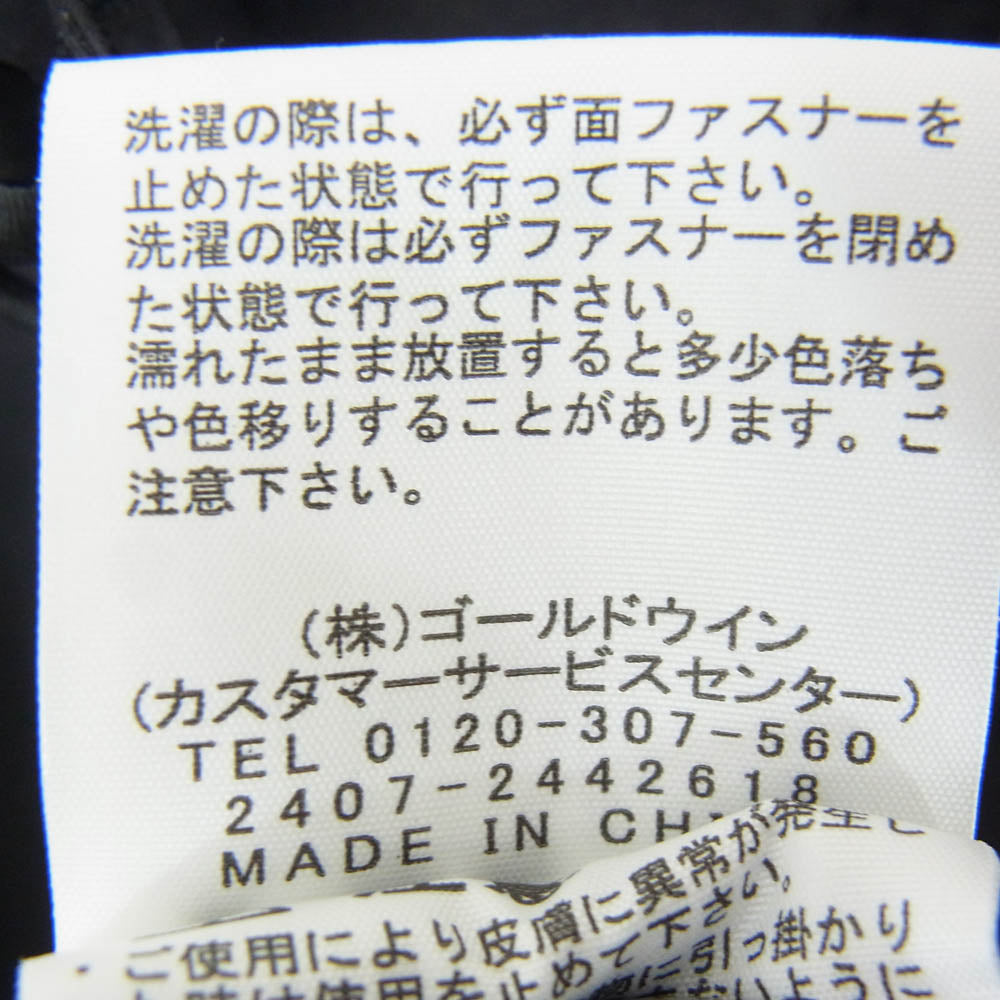 洗濯の際は、必ず面ファスナーを
止めた状態で行って下さい。
洗濯の際は必ずファスナーを閉め
た状態で行って下さい。
濡れたまま放置すると多少色落ち
や色移りすることがあります。ご
注意下さい。
(株)ゴールドウイン
(カスタマーサービスセンター)
TEL 0120-307-560
2407-2442618
MADE IN CH
・ご使用により皮膚に異常が発生し
は使用を止めて下さい。
引っ掛かり
ないように